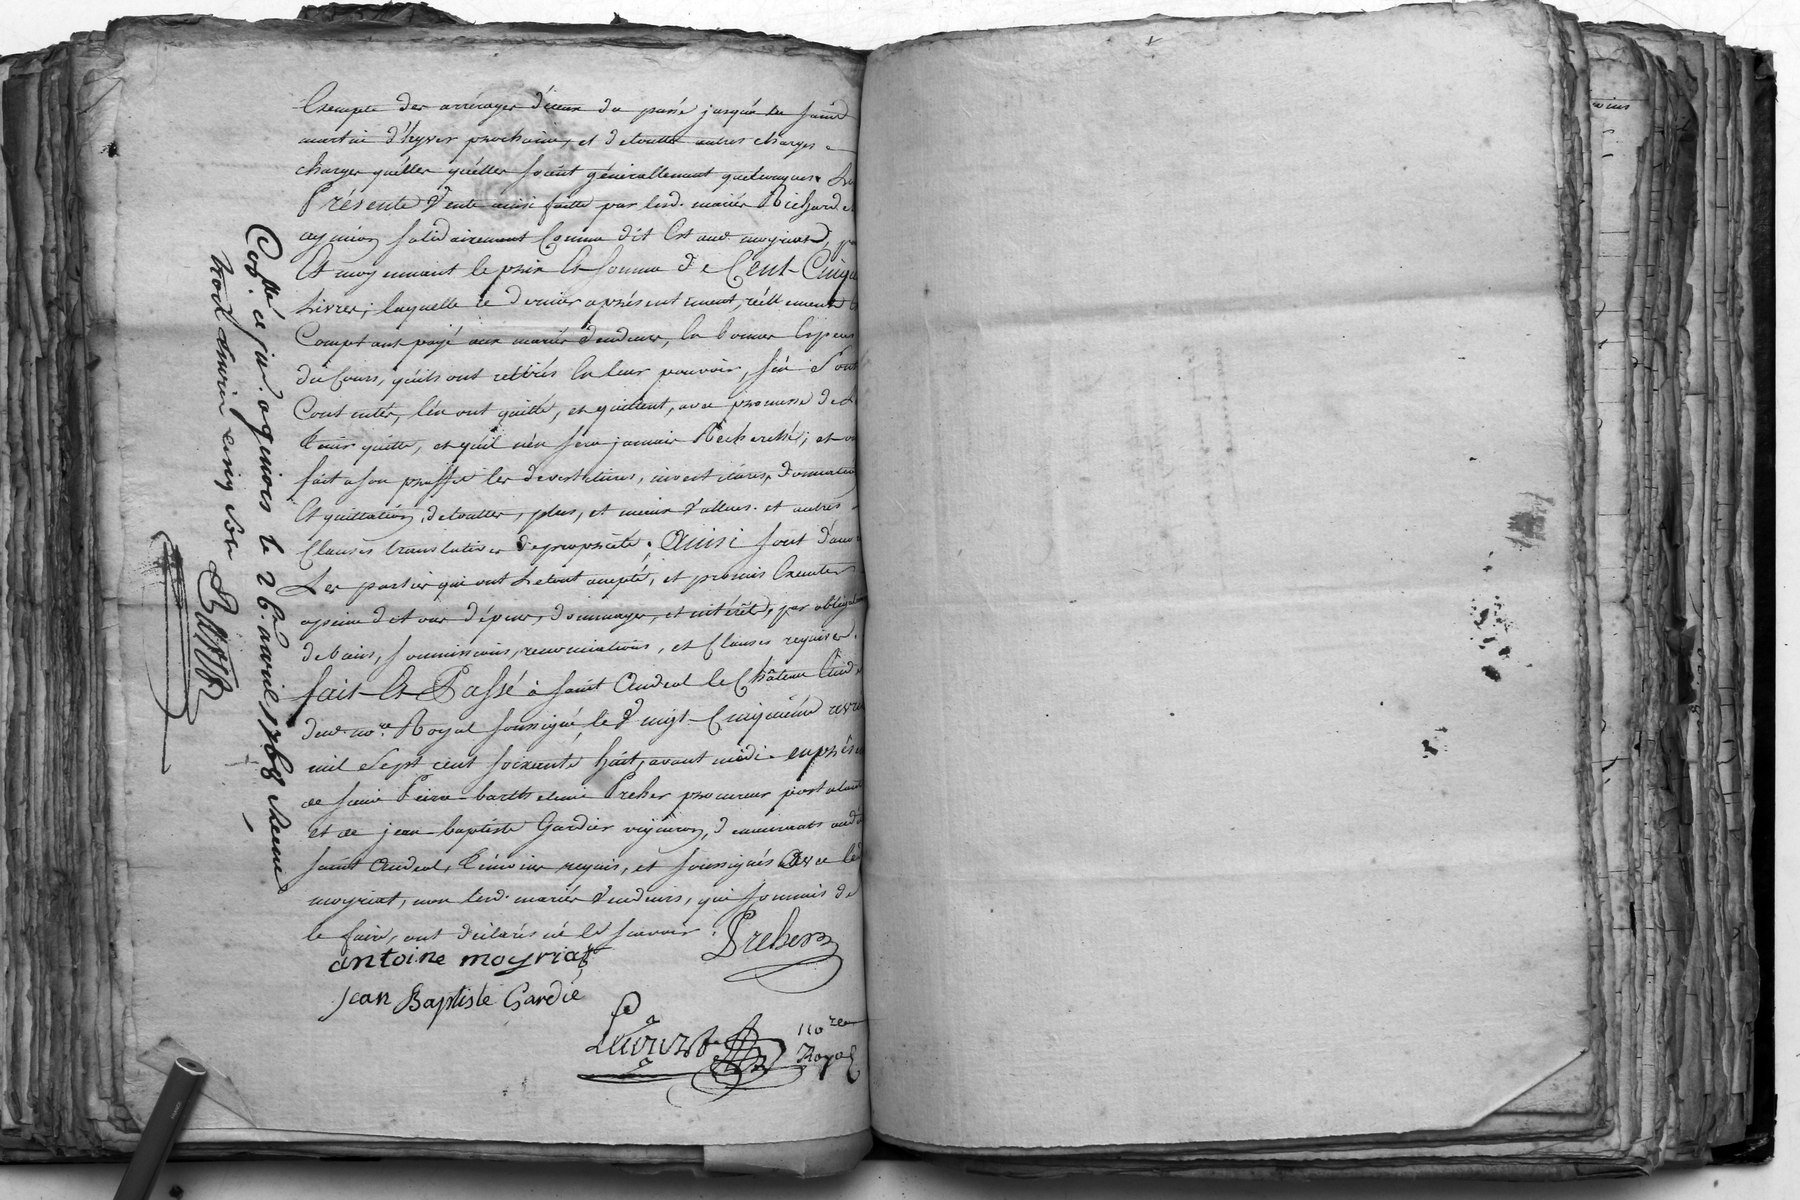 Exempte des arrérages d'iceux du passé jusqu'a la saint
martin d'hyver prochain, et detoutte autres charges
charges quéller quéller soient générallement quelconques. La
Présente Vente ainsi faitte par lesd. mariés Richard et
aymion solidairement Comme dit Est aud. moyriat,
Et moyennant le prix Et somme de Cent Cinqu
Livres; laquelle ce dernier aprésentement, réellement
Comptant payé aux mariés Vendeurs, En bonnes Espèces
du Cours, qu'ils ont retirés En leur pouvoir, s'en sont
Contentés, l'en ont quitté, et quittent, avec promesse de
tenir quitte, et qu'il n'en sera jamais Recherché; et ont
fait a son proffit les devestitures, investitures, donnation
Et quittation, detoutte, plus, et mieux Vallues. et autres
Clauses translatives depropriété. Ainsi sont d'accord
Les parties qui ont Letout accepté, et promis Executer
apeine detous dépens, dommages, et intérêts, par obligation
debiens, soumissions, renonciations, et Clauses requises.
fait Et Passé à saint Andeol le Château Etude
dud. no.re Royal soussigné, le Vingt Cinquième
mil sept cent soixante huit, avant midi. en présence
de sieur Peirre-barthelemi Preher procureur postulant
et de jean-baptiste Gardier vigneron, demeurants aud.
saint Andeol, témoins requis, et soussignés Avec led.
moyriat, non lesd. mariés Vendeurs, qui sommés de
le faire, ont déclarés né le scavoir.
Preher
antoine moyriat
jean Baptiste Gardie
no.re
Royal
Co.llé ce jur. a givors le 26.e avril 1768 Recue
trois livres cinq sols